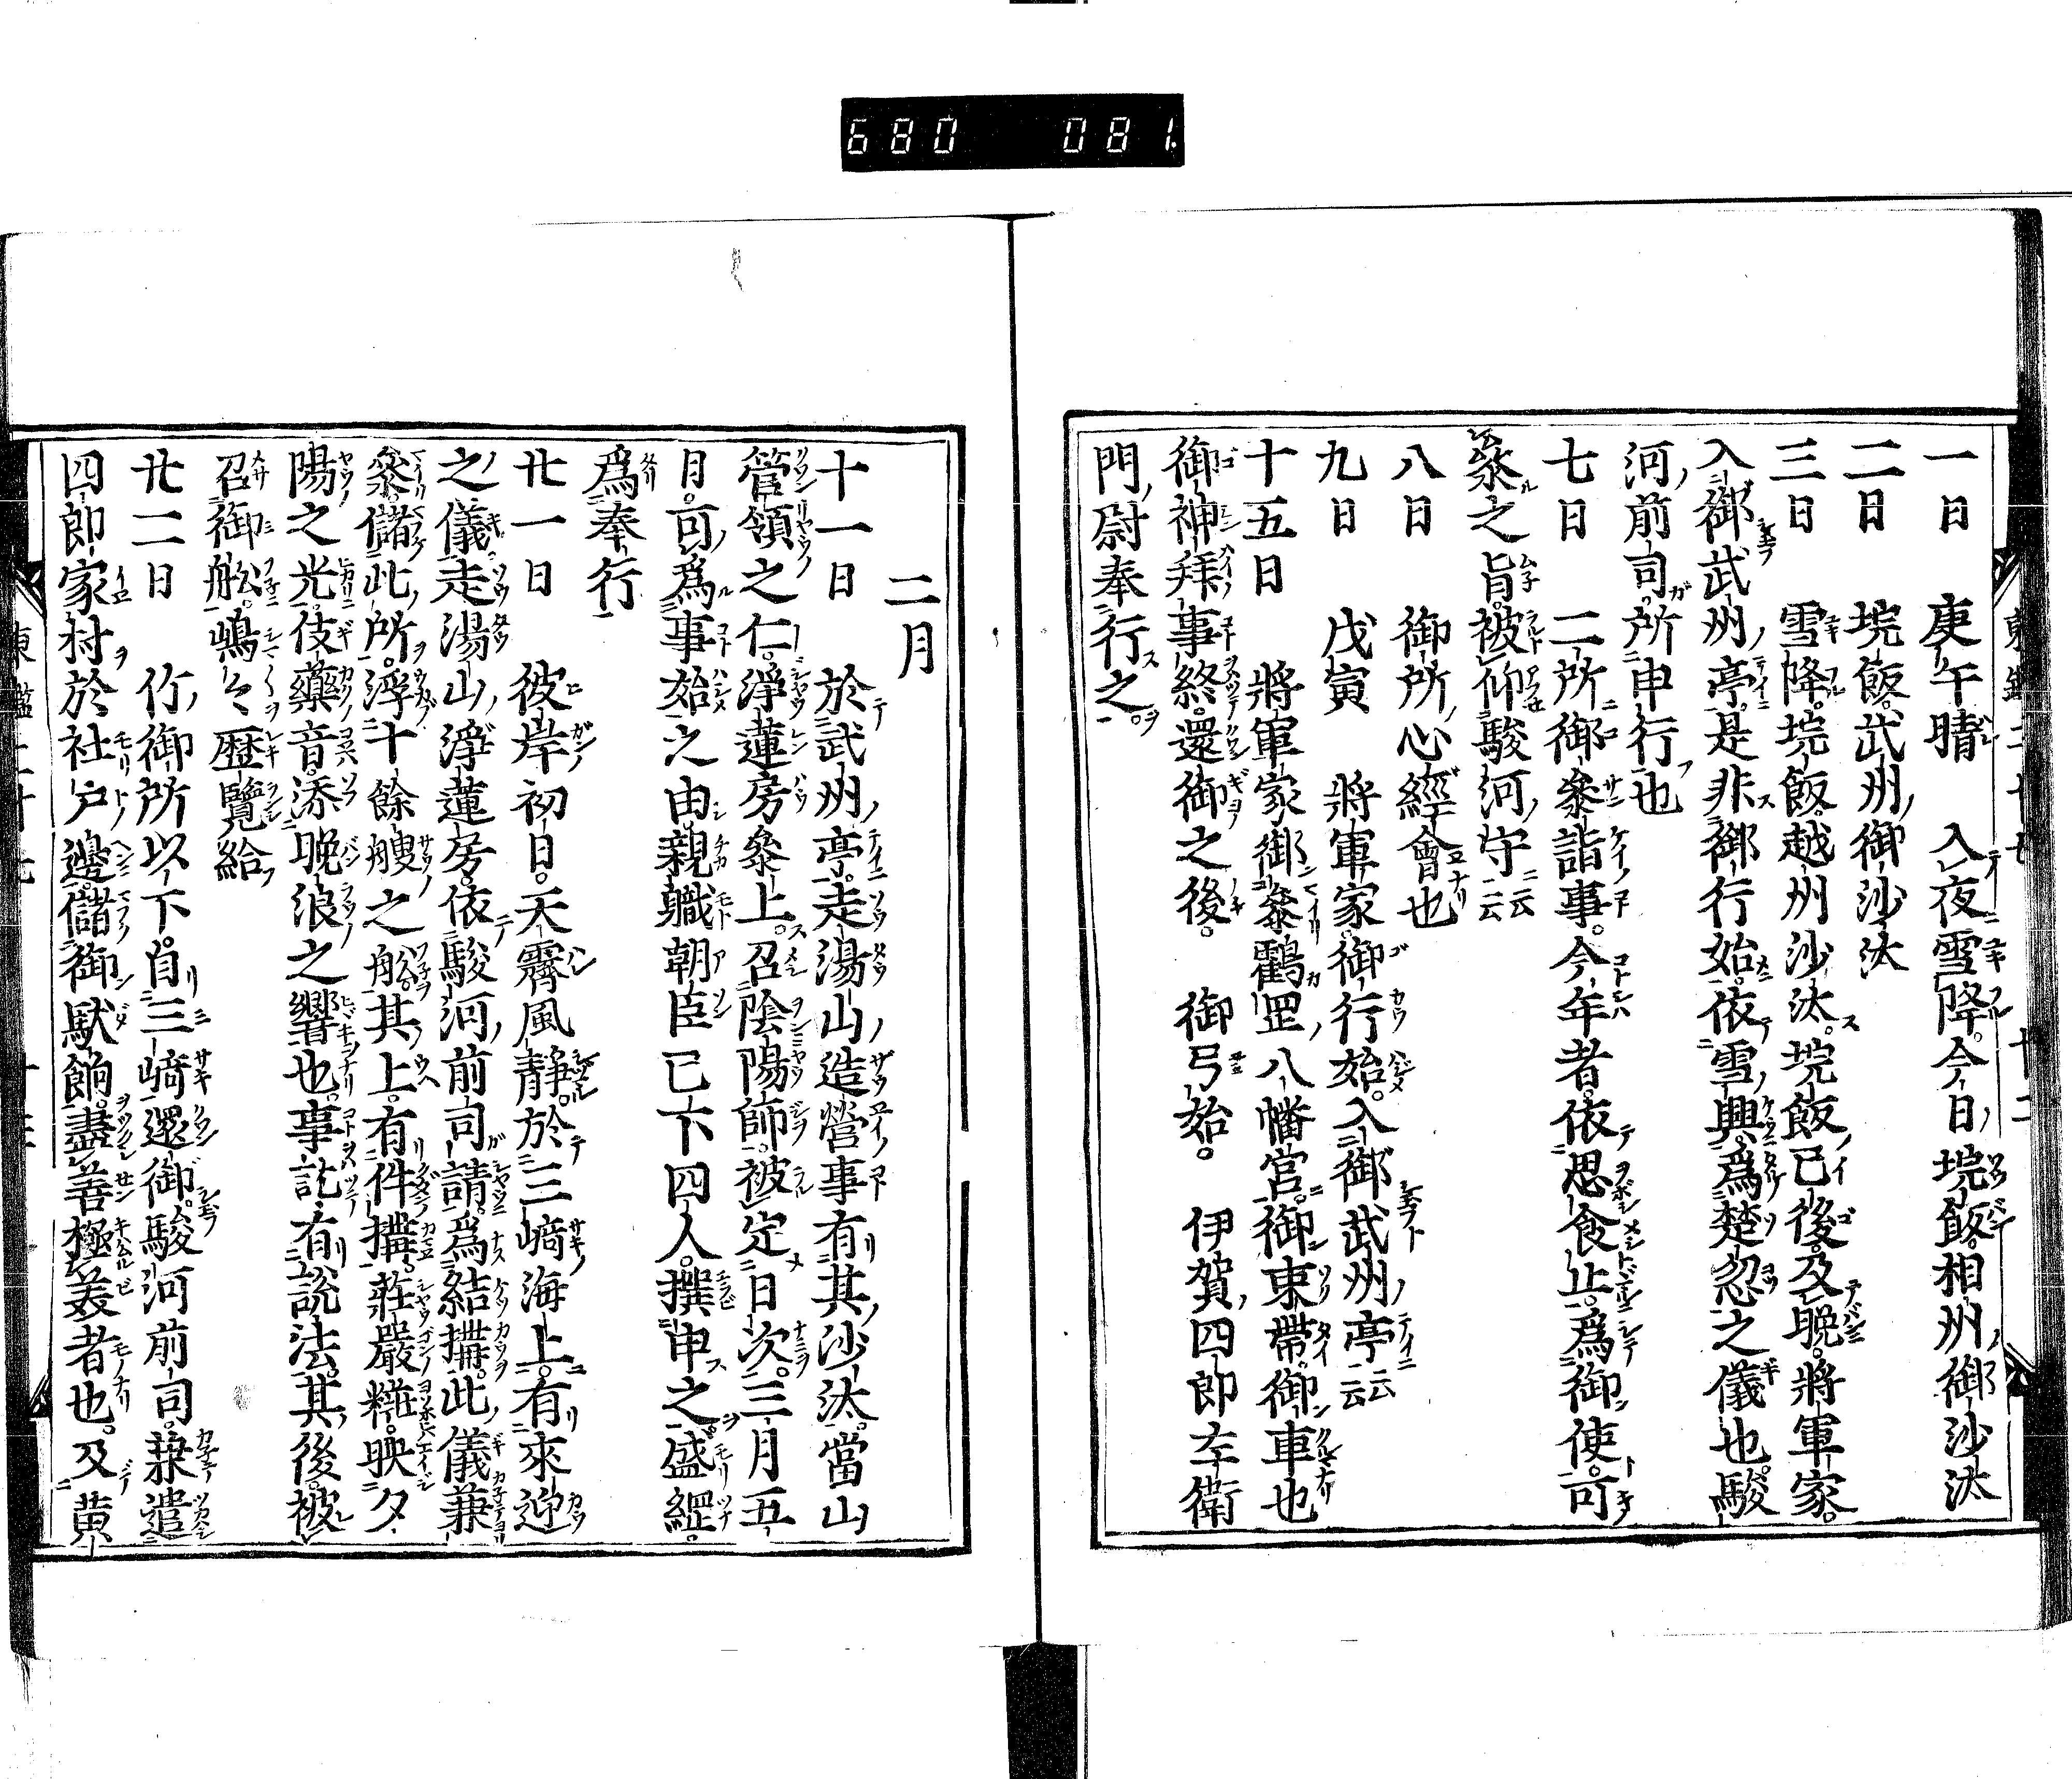 680 081.
一日 庚午晴 入夜雪降。今日垸飯。相州御沙汰
二日 垸飯。武州御沙汰
三日 雪降。垸飯。越州沙汰。垸飯已後。及晩。將軍家。
入御武州亭。是非御行始。依雪興。爲楚忽之儀也。駿
河前司。所申行也
七日 二所御參詣事。今年者。依思食止。爲御使。可
參之旨。被仰駿河守云云
八日 御所心經會也
九日 戊寅 將軍家。御行始。入御武州亭云云
十五日 將軍家御參鶴罡八幡宮。御束帶。御車也
御神拜事終。還御之後。 御弓始。 伊賀四郎左衛
門尉奉行之。
二月
十一日 於武州亭。走湯山造營事有其沙汰。當山
管領之仁。淨蓮房參上。召陰陽師。被定日次。三月五
月。可爲事始之由。親職朝臣已下四人。撰申之。盛綱。
爲奉行
廿一日 彼岸初日。天霽風靜。於三﨑海上。有來迎
之儀。走湯山淨蓮房。依駿河前司請。爲結搆此儀兼
參。儲此所。浮十餘艘之船。其上。有件搆。莊嚴粧。映夕
陽之光。伎藥音。添晩浪之響也。事訖。有說法。其後。被
召御舩。嶋々歷覽給
廿二日 竹御所以下。自三﨑還御。駿河前司。兼遣
四郎家村於社戸邊。儲御駄餉。盡善極美者也。及黄